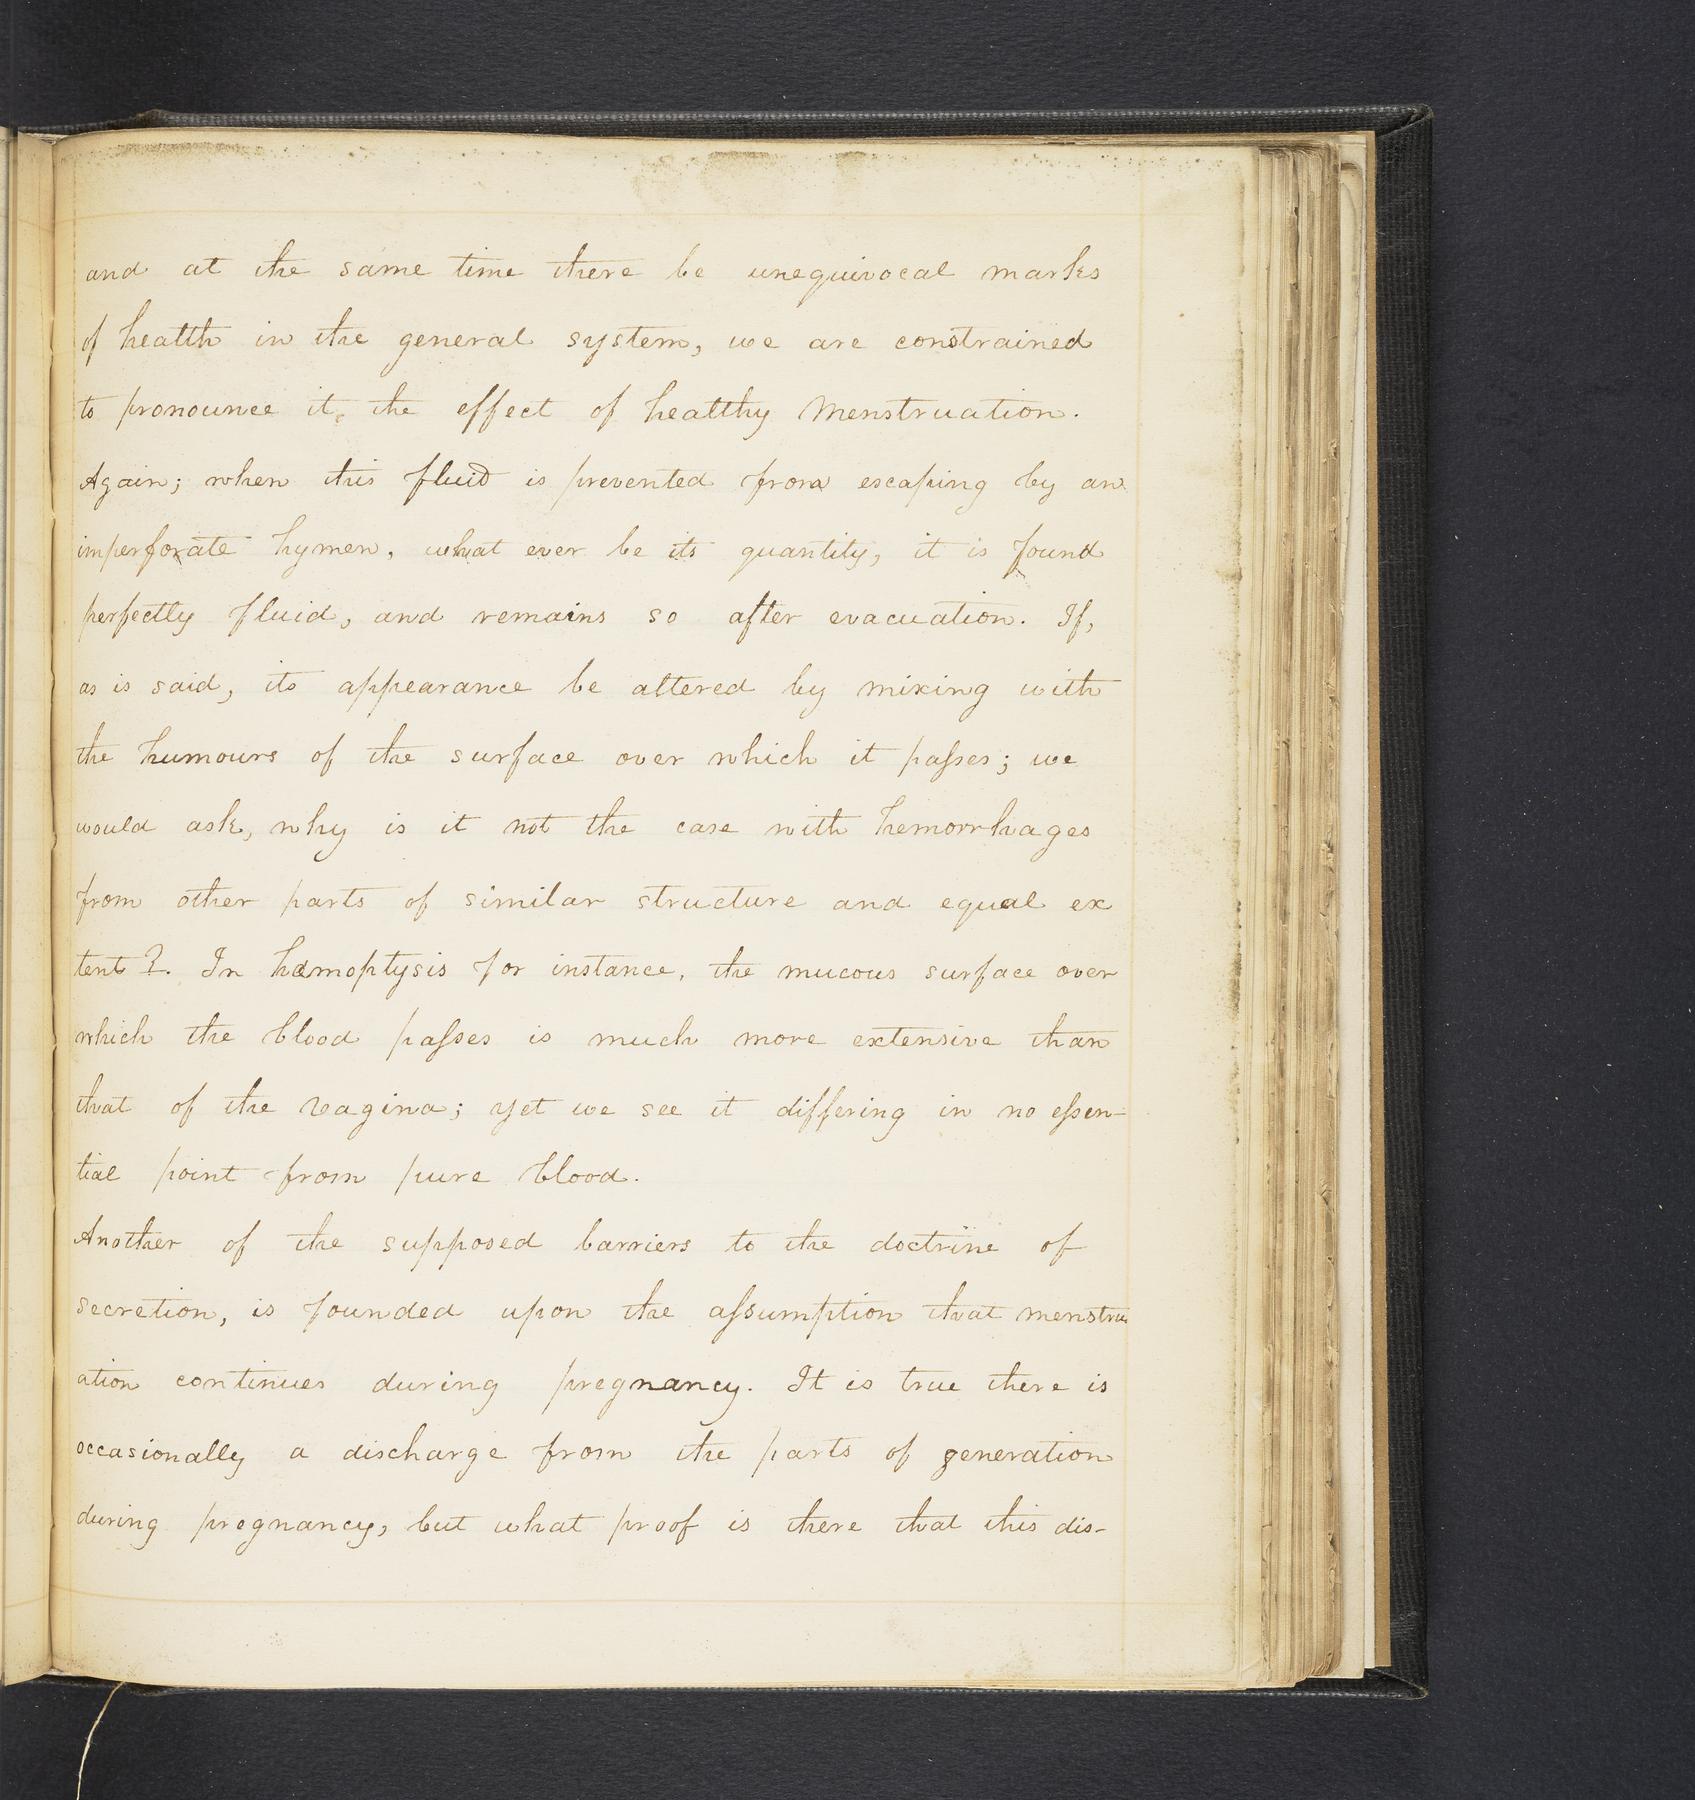 and at the same time there be unequivocal marks
of health in the general system, we are constrained
to pronounce it, the effect of healthy Menstruation.
Again; when this fluid is prevented from escaping by an
imperforate hymen, what ever be its quantity, it is found
perfectly fluid, and remains so after evacuation. If,
as is said, its appearance be altered by mixing with
the humours of the surface over which it paſses; we
would ask, why is it not the case with hemorrhages
from other parts of similar structure and equal ex
tent?. In hæmoptysis for instance, the mucous surface over
which the blood paſses is much more extensive than
that of the vagina; yet we see it differing in no eſsen-
tial point from pure blood.
Another of the supposed barriers to the doctrine of
secretion, is founded upon the aſsumption that menstru
ation continues during pregnancy. It is true there is
occasionally a discharge from the parts of generation
during pregnancy, but what proof is there that this dis-